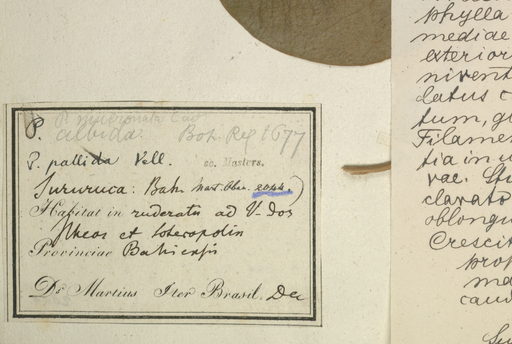 P. mucronata
P. albida. Bot. Reg 1677
P. pallida Vell. co. Masters.
Sururuca: Bah Mart. Obs. 2044.)
Habitat in ruderatis ad V. dos
Ilheos et
Provinciae Bahiensis
Dr Martius Iter Brasil. Dec
phylla
mediae
exterior
nivent
latus
tum, gl
Filamen
tia in
vae.
clavato
oblongu
Crescit
prop
ma
caud